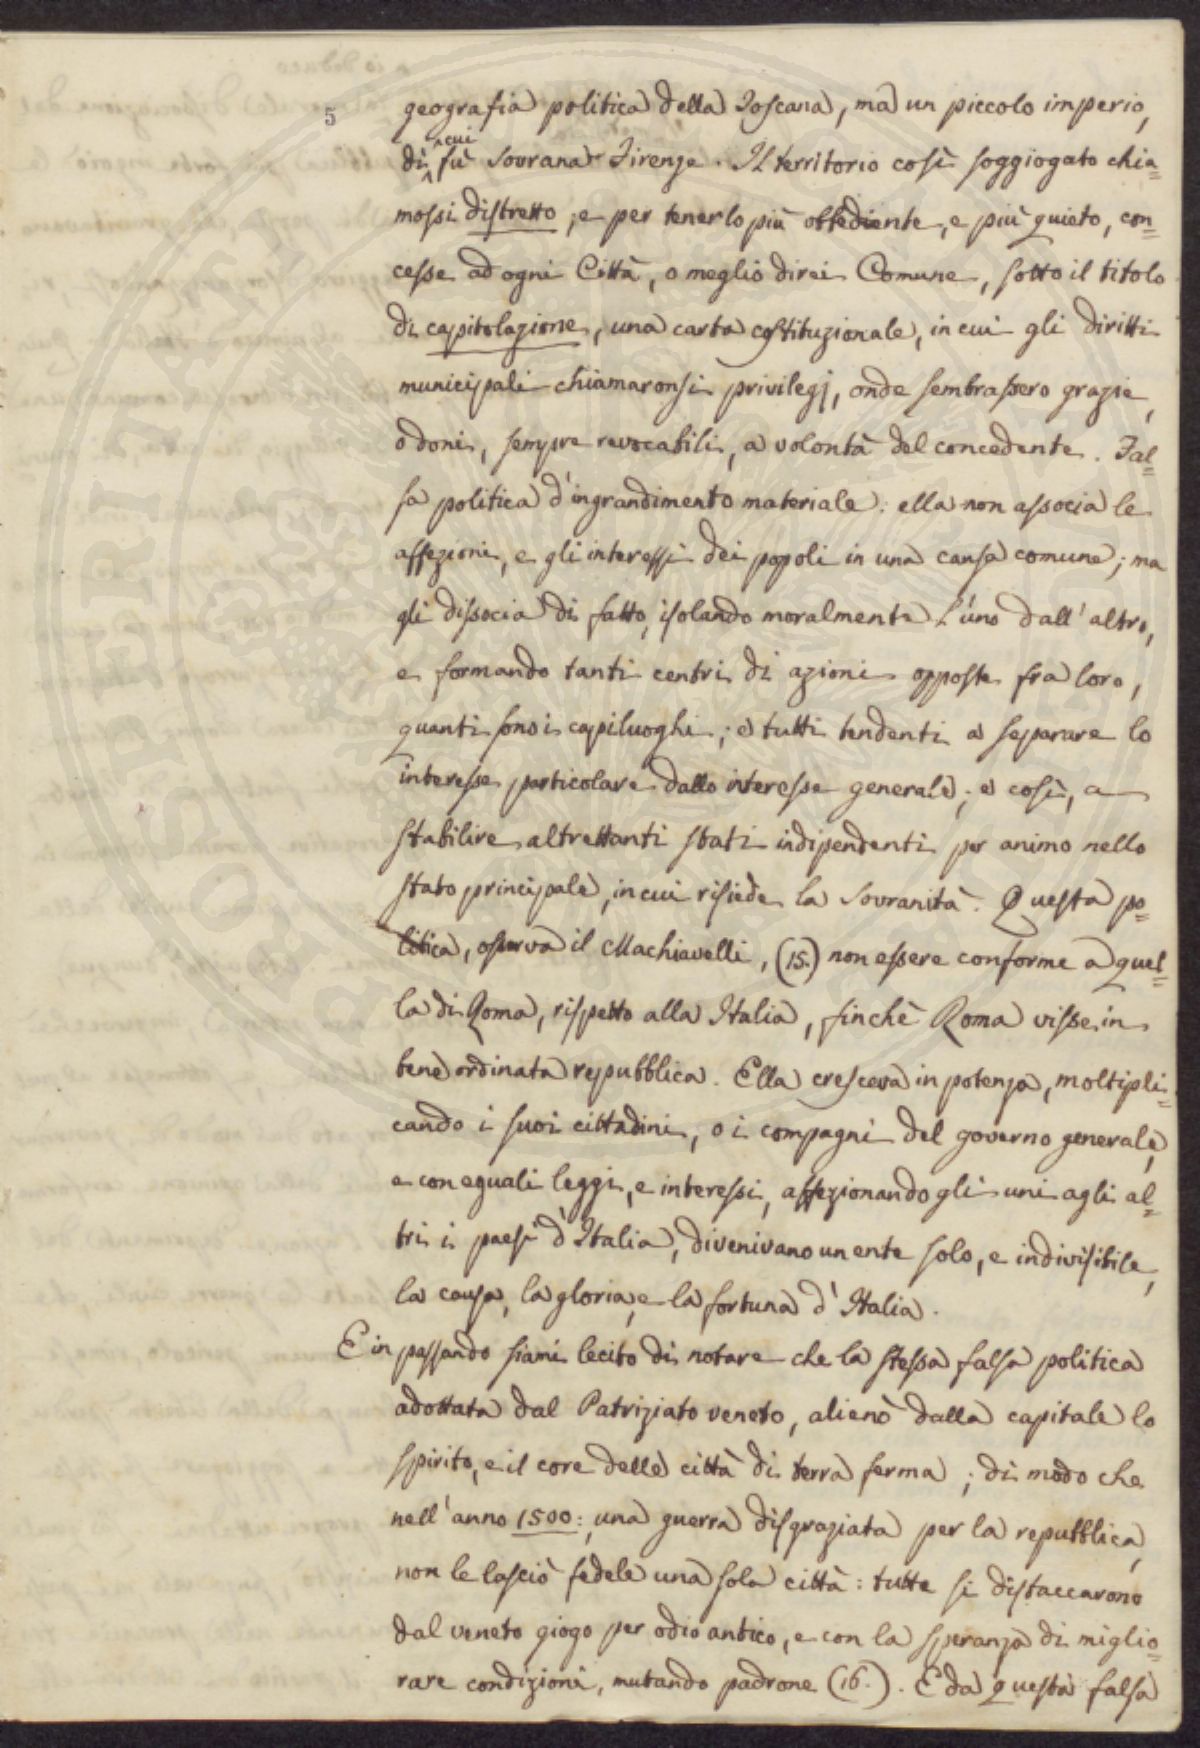 5
geografia politica della Toscana, ma un piccolo imperio,
di cui fù Sovrana Firenze. Il territorio così soggiogato chia=
mossi distretto; e per tenerlo più obbediente, e più quieto, con=
cesse ad ogni Città, o meglio direi Comune, sotto il titolo
di capitolazione, una carta costituzionale, in cui gli diritti
municipali chiamaronsi privilegj, onde sembrassero grazie,
o doni, sempre revocabili, a volontà del concedente. Fal=
sa politica d'ingrandimento materiale: ella non associa le
affezioni, e gli interessi dei popoli in una causa comune; ma
gli dissocia di fatto, isolando moralmente l'uno dall'altro,
e formando tanti centri di azioni opposte fra loro,
quanti sono i capiluoghi; e tutti tendenti a separare lo
interesse particolare dallo interesse generale; e così, a
stabilire altrettanti stati indipendenti per animo nello
stato principale, in cui risiede la Sovranità. Questa po=
litica, osserva il Machiavelli, (15.) non essere conforme a quel=
la di Roma, rispetto alla Italia, finchè Roma visse in
bene ordinata repubblica. Ella cresceva in potenza, moltipli=
cando i suoi cittadini, o i compagni del governo generale,
e con eguali leggi, e interessi, affezionando gli uni agli al=
tri i paesi d'Italia, divenivano un ente solo, e indivisibile,
la causa, la gloria, e la fortuna d'Italia.
E in passando siami lecito di notare che la stessa falsa politica
adottata dal Patriziato veneto, alienò dalla capitale lo
spirito, e il core delle città di terra ferma; di modo che
nell'anno 1500:, una guerra disgraziata per la repubblica,
non le lasciò fedele una sola città: tutte si distaccarono
dal veneto giogo per odio antico, e con la speranza di miglio=
rare condizioni, mutando padrone (16.). E da questa falsa
PROSPERITATI